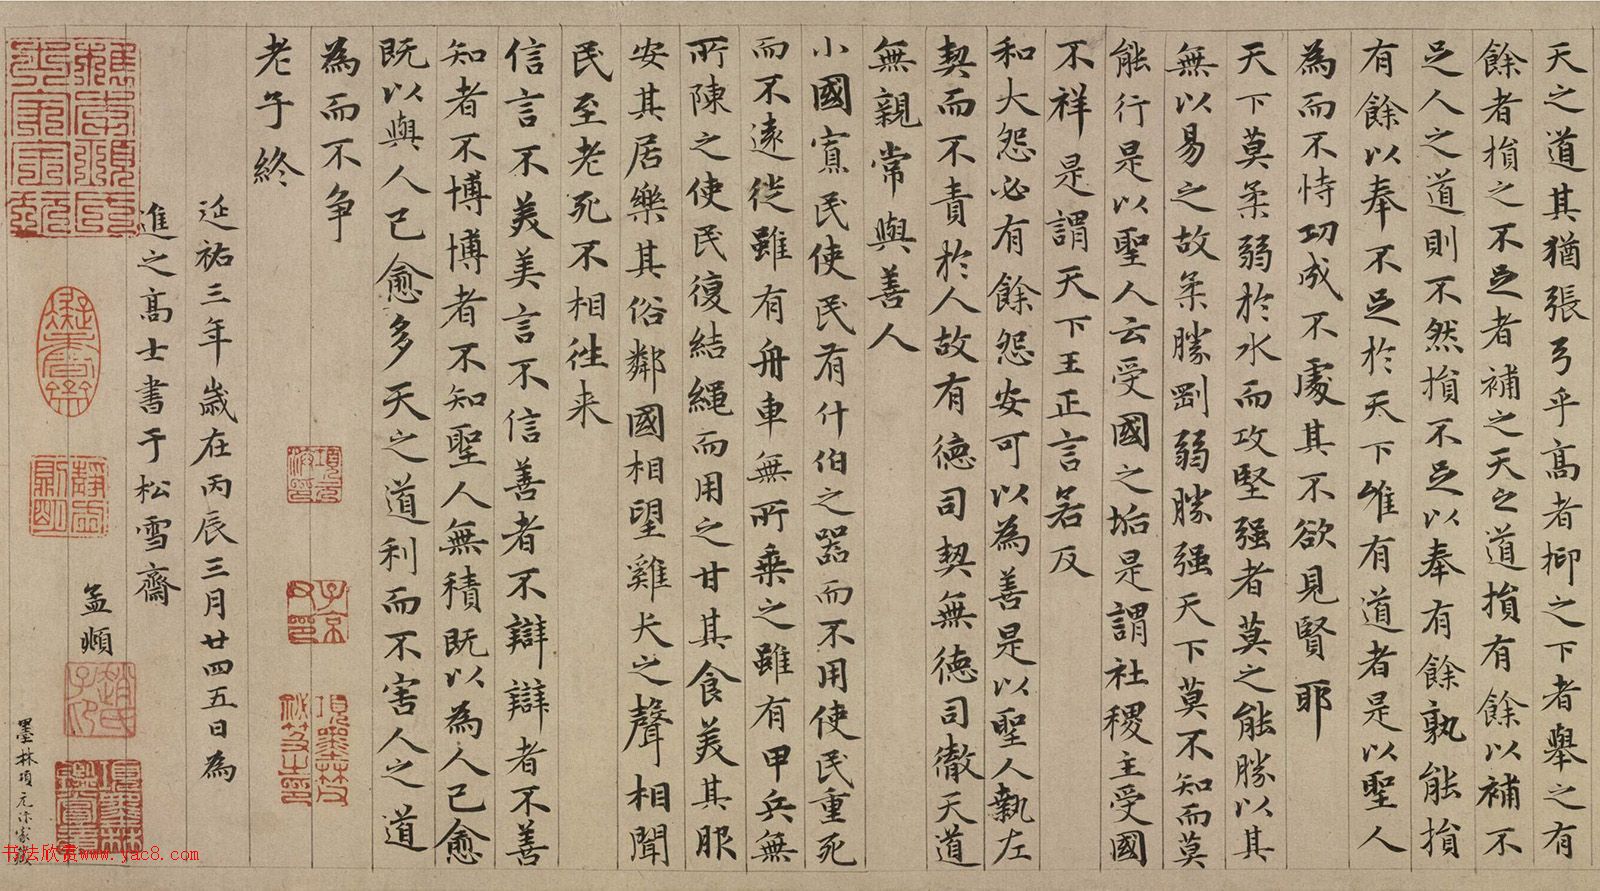 天之道其猶張弓乎高者抑之下者舉之有
餘者損之不足者補之天之道損有餘以補不
足人之道則不然損不足以奉有餘孰能損
有餘以奉不足於天下唯有道者是以聖人
為而不恃功成不處其不欲見賢耶
天下莫柔弱於水而攻堅强者莫之能勝以其
無以易之故柔勝剛弱勝强天下莫不知而莫
能行是以聖人云受國之垢是謂社稷主受國
不祥是謂天下王正言若反
和大怨必有餘怨安可以為善是以聖人執左
契而不責於人故有德司契無德司徹天道
無親常與善人
小國寡民使民有什伯之器而不用使民重死
而不遠徙雖有舟車無所乘之雖有甲兵無
所陳之使民復結繩而用之甘其食美其服
安其居樂其俗鄰國相望雞犬之聲相聞
民至老死不相往来
信言不美美言不信善者不辯辯者不善
知者不博博者不知聖人無積既以為人己愈
既以與人己愈多天之道利而不害人之道
為而不争
老子終
延祐三年歲在丙辰三月廿四五日為
進之高士書于松雪齋
孟頫
墨林項元汴家藏
书法欣赏www.yac8.com